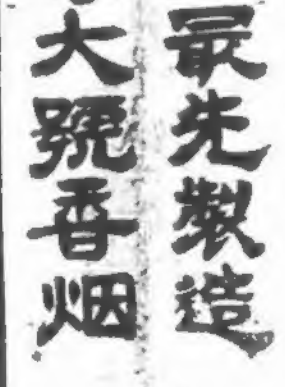 最先製造
大號香烟